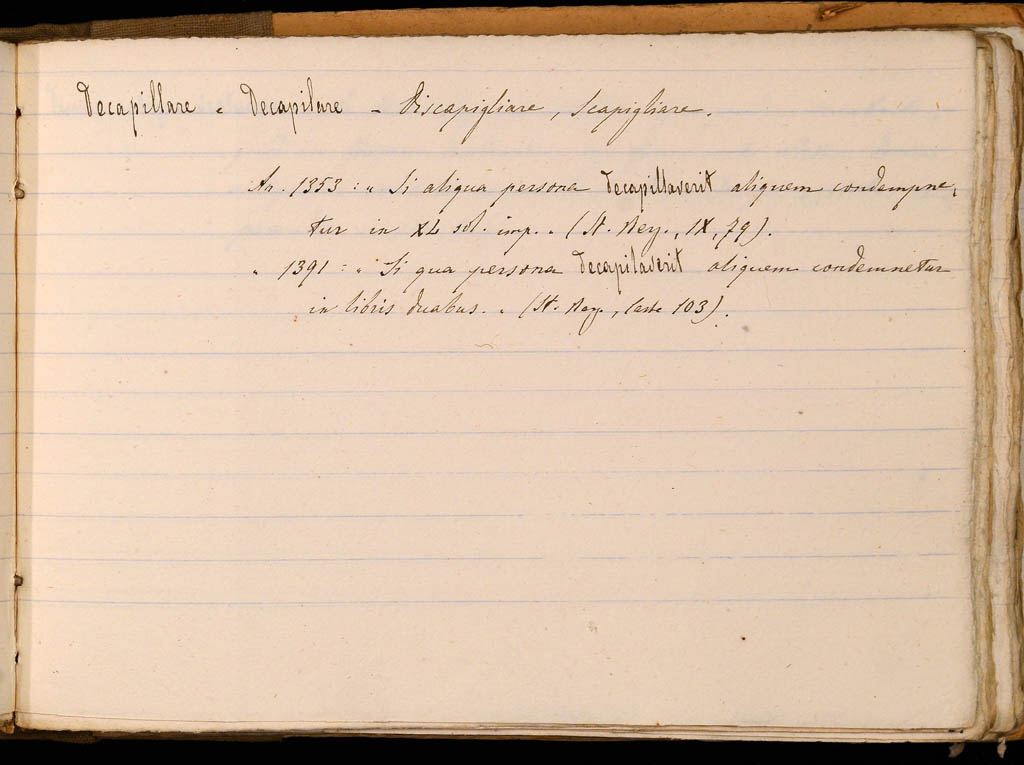 Decapillare e Decapilare – Discapigliare, Scapigliare.
An. 1353 : „ Si aliqua persona decapillaverit aliquem condempne,
tur in XL sol. imp. „ (St. Rey., IX, 79).
„ 1391 : „ Si qua persona decapilaverit aliquem condemnetur
in libris duabus. „ (St. Rey., carte 103).